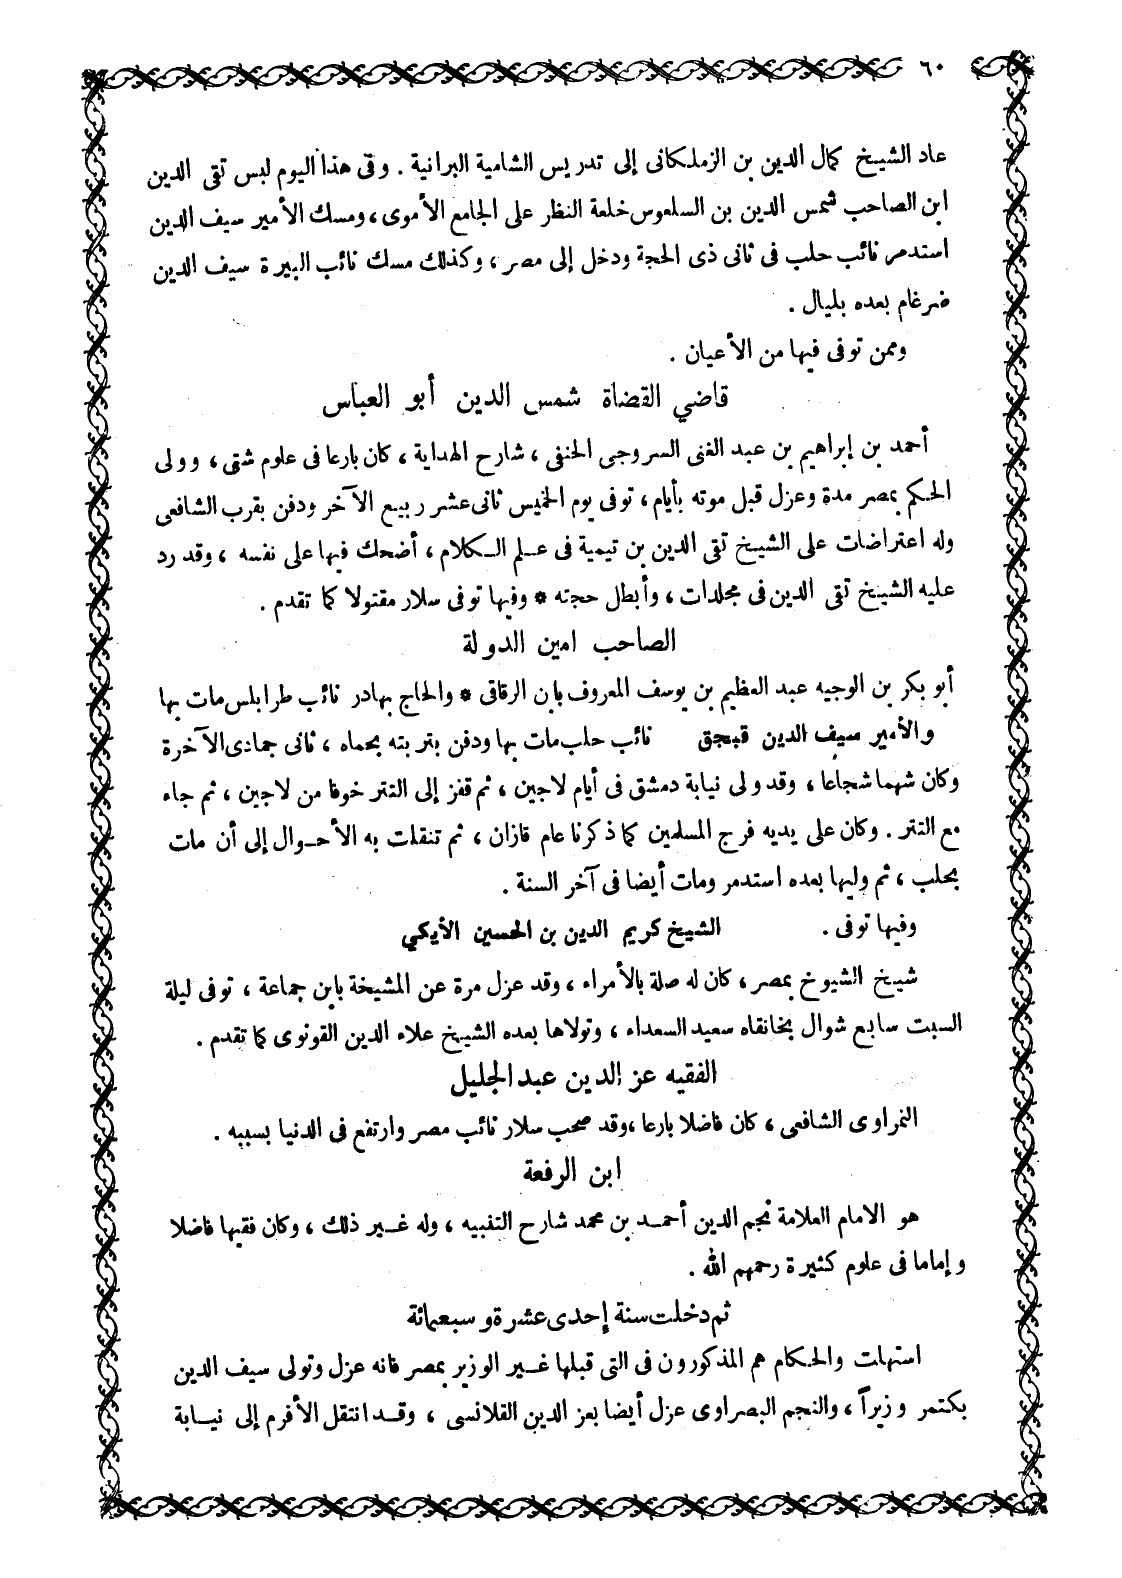 ٦٠
عاد الشيخ كمال الدين بن الزملكانى إلى تدريس الشامية البرانية . وفى هذا اليوم لبس تقى الدين
ابن الصاحب شمس الدين بن السلعوس خلعة النظر على الجامع الأموى ، ومسك الأمير سيف الدين
استدمر نائب حلب فى ثانى ذى الحجة ودخل إلى مصر ، وكذلك مسك نائب البيرة سيف الدين
ضرغام بعده بليال .
وممن توفى فيها من الأعيان .
قاضي القضاة شمس الدين أبو العباس
أحمد بن إبراهيم بن عبد الغنى السروجى الحنفى ، شارح الهداية ، كان بارعا فى علوم شتى ، وولى
الحكم بمصر مدة وعزل قبل موته بأيام ، توفى يوم الخميس ثانى عشر ربيع الآخر ودفن بقرب الشافعى
وله اعتراضات على الشيخ تقى الدين بن تيمية فى علم الكلام ، أضحك فيها على نفسه ، وقد رد
عليه الشيخ تقى الدين فى مجلدات ، وأبطل حجته * وفيها توفى سلار مقتولا كما تقدم .
الصاحب امين الدولة
أبو بكر بن الوجيه عبد العظيم بن يوسف المعروف بابن الرقاقى * والحاج بهادر نائب طرابلس مات بها
والأمير سيف الدين قبجق نائب حلب مات بها ودفن بتربته بحماه ، ثانى جمادى الآخرة
وكان شهما شجاعا ، وقد ولى نيابة دمشق فى أيام لاجين ، ثم قفز إلى التتر خوفا من لاجين ، ثم جاء
مع التتر . وكان على يديه فرج المسلمين كما ذكرنا عام قازان ، ثم تنقلت به الأحوال إلى أن مات
بحلب ، ثم وليها بعده استدمر ومات أيضا فى آخر السنة .
وفيها توفى . الشيخ كريم الدين بن الحسين الأيكي
شيخ الشيوخ بمصر ، كان له صلة بالأمراء ، وقد عزل مرة عن المشيخة بابن جماعة ، توفى ليلة
السبت سابع شوال بخانقاه سعيد السعداء ، وتولاها بعده الشيخ علاء الدين القونوى كما تقدم .
الفقيه عز الدين عبد الجليل
النمراوى الشافعى ، كان فاضلا بارعا ، وقد صحب سلار نائب مصر وارتفع فى الدنيا بسببه .
ابن الرفعة
هو الامام العلامة نجم الدين أحمد بن محمد شارح التنبيه ، وله غير ذلك ، وكان فقيها فاضلا
وإماما فى علوم كثيرة رحمهم الله .
ثم دخلت سنة إحدى عشرة وسبعمائة
استهلت والحكام هم المذكورون فى التى قبلها غير الوزير بمصر فانه عزل وتولى سيف الدين
بكتمر وزيراً ، والنجم البصراوى عزل أيضا بعز الدين القلانسى ، وقد انتقل الأفرم إلى نيابة